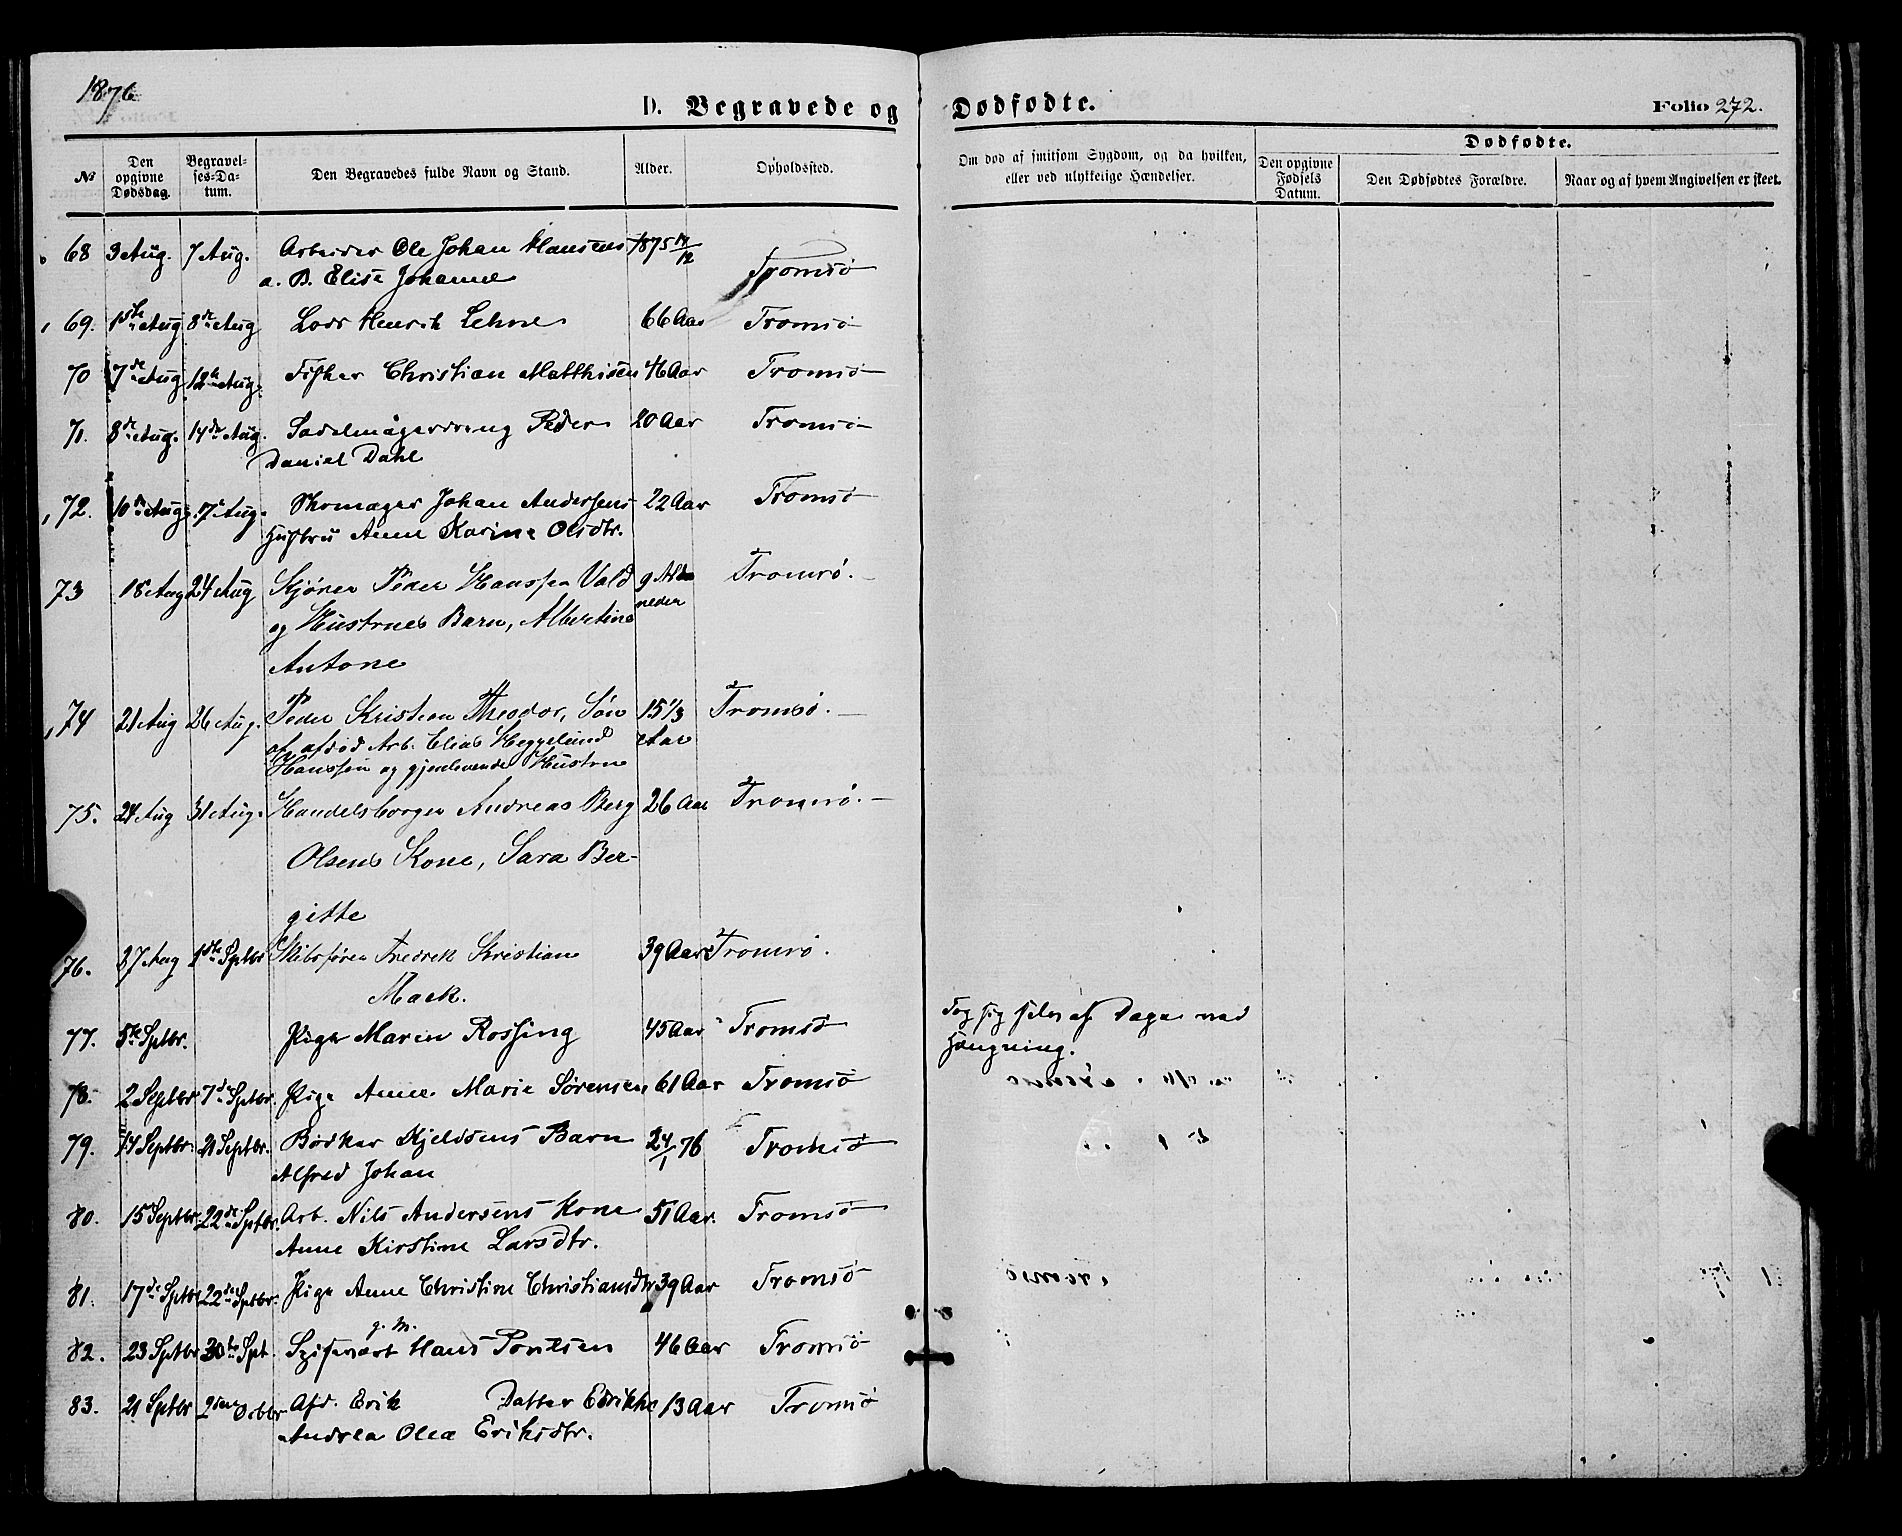 1876
D. Begravede og Dødfødte. Folio 272.
Dødfødte.
No Den opgivne Dødsdag. Begravelses-Datum. Den Begravedes fulde Navn og Stand. Alder. Opholdssted. Om død af smitsom Sygdom, og da hvilken, eller ved ulykkelige Hændelser. Den opgivne Fødsels Datum. Den Dødfødtes Forældre. Naar og af hvem Angivelsen er skeet.
68 3 Aug. 7 Aug. Arbeider Ole Johan Hansens 1875 14/12 Tromsø
a. B. Elise Johanne
69. 1ste Aug 8de Aug Lods Henrik Lehne 66 Aar Tromsø
70 7de Aug 12te Aug. Fisker Christian Matthisen 46 Aar Tromsø
71. 8de Aug. 14de Aug. Sadelmagerdreng Peder 20 Aar Tromsø
Daniel Dahl
72. 10de Aug. 17 Aug. Skomager Johan Andersens 22 Aar Tromsø
Hustru Anne Karine Olsdtr.
73 18 Aug 24 Aug Skjöner Peder Hanssen Vald 9 Maaneder Tromsø.
og Hustrues Barn, Albertine
Antone
74 21 Aug 26 Aug. Peder Kristian Theodor, Søn 15 1/3 Aar Tromsø.
af afdød Arb. Elias Heggelund
Hanssen og gjenlevende Hustrue
75. 24 Aug 31 Aug. Handelsborger Andreas Berg 26 Aar Tromsø.
Olsens Kone, Sara Ber-
gitte
76. 27 Aug 1ste Sptbr Skibsfører Fredrek Kristian 39 Aar Tromsø.
Mack.
77. 5te Sptbr. Pige Maren Rossing 45 Aar Tromsø Tog sig selv af Dage ved
Hængning.
78. 2 Septbr 7de Sptbr. Pige Anne Marie Sørensen 61 Aar Tromsø
79. 14 Septbr. 21 Septbr. Bødker Kjeldsens Barn 24/1 76 Tromsø
Alfred Johan
80. 15 Septbr. 22de Sptbr. Arb. Nils Andersens Kone 51 Aar. Tromsø
Anne Kirstine Larsdtr.
81. 17de Sptbr 22de Sptbr. Pige Anne Christine Christiansdtr 39 Aar Tromsø
g. M.
82. 23 Sptbr 30te Spt. Hans Poulsen 46 Aar Tromsø
83. 21 Sptbr 2den Octbr Afd. Erik Datter Edrikke 13 Aar Tromsø
Andrea Olea Eriksdtr.